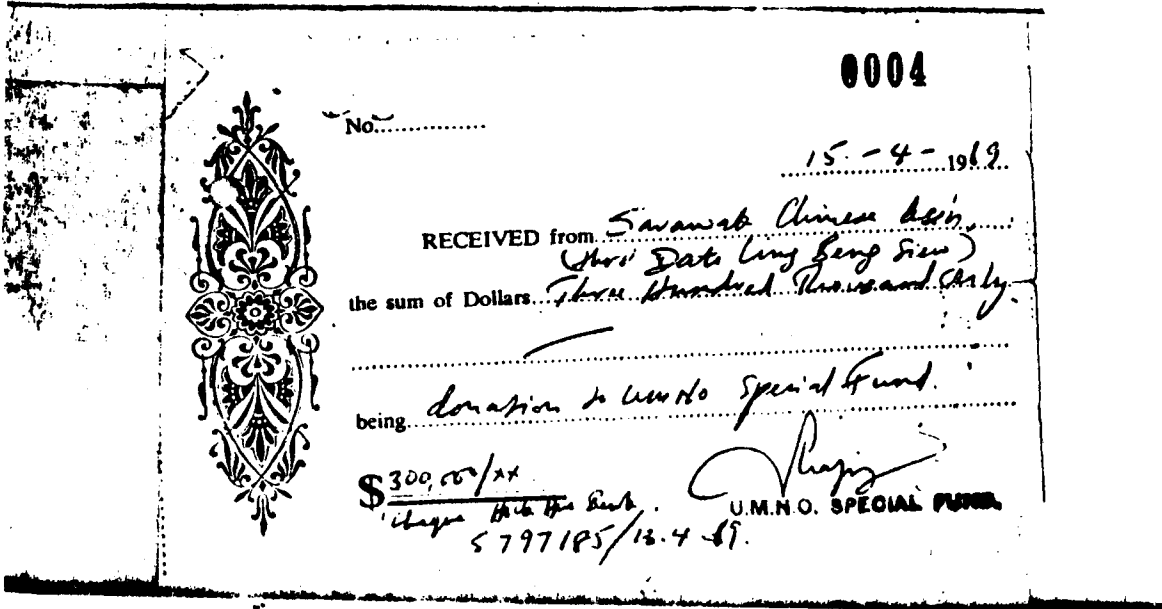 0004
No.
15 - 4 - 1969
RECEIVED from Sarawak Chinese Assn.
(thro' Dato Ling Beng Siew)
the sum of Dollars Three Hundred Thousand Only
being donation to UMNO Special Fund.
$ 300,000/xx
cheque Hock Hua Bank.
U.M.N.O. SPECIAL FUND.
5797185/13.4.69.